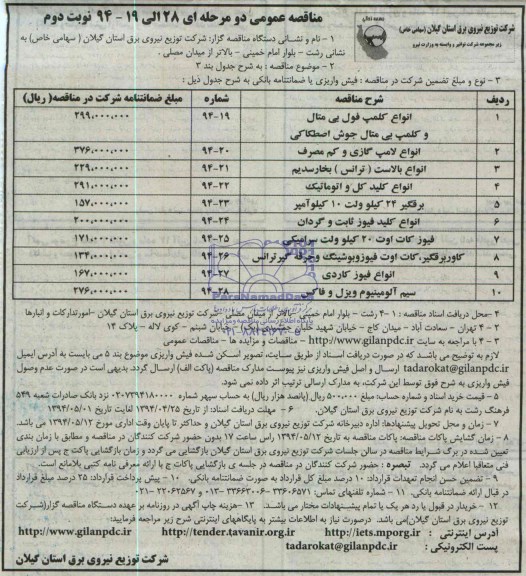 شرکت توزیع نیروی برق استان گیلان (سهامی خاص)
زیر مجموعه شرکت توانیر و وابسته به وزارت نیرو
مناقصه عمومی دو مرحله ای ۲۸ الی ۱۹ - ۹۴ نوبت دوم
۱ - نام و نشانی دستگاه مناقصه گزار: شرکت توزیع نیروی برق استان گیلان ( سهامی خاص) به
نشانی رشت - بلوار امام خمینی - بالاتر از میدان مصلی .
۲ - موضوع مناقصه : به شرح جدول بند ۳
۳ - نوع و مبلغ تضمین شرکت در مناقصه : فیش واریزی یا ضمانتنامه بانکی به شرح جدول ذیل :
ردیف شرح مناقصه شماره مبلغ ضمانتنامه شرکت در مناقصه( ریال)
۱ انواع کلمپ فول بی متال و کلمپ بی متال جوش اصطکاکی ۹۴-۱۹ ۲۹۹،۰۰۰،۰۰۰
۲ انواع لامپ گازی و کم مصرف ۹۴-۲۰ ۳۷۶،۰۰۰،۰۰۰
۳ انواع بالاست ( ترانس ) بخارسدیم ۹۴-۲۱ ۲۲۹،۰۰۰،۰۰۰
۴ انواع کلید کل و اتوماتیک ۹۴-۲۲ ۲۹۱،۰۰۰،۰۰۰
۵ برقگیر ۲۴ کیلو ولت ۱۰ کیلوآمپر ۹۴-۲۳ ۱۵۷،۰۰۰،۰۰۰
۶ انواع کلید فیوز ثابت و گردان ۹۴-۲۴ ۲۰۰،۰۰۰،۰۰۰
۷ فیوز کات اوت ۲۰ کیلو ولت سرامیکی ۹۴-۲۵ ۱۷۱،۰۰۰،۰۰۰
۸ کاوربرقگیر،کات اوت فیوزوبوشینگ وجرقه گیرترانس ۹۴-۲۶ ۱۳۴،۰۰۰،۰۰۰
۹ انواع فیوز کاردی ۹۴-۲۷ ۱۶۷،۰۰۰،۰۰۰
۱۰ سیم آلومینیوم ویزل و فاکس ۹۴-۲۸ ۲۷۶،۰۰۰،۰۰۰
ParsNamadData
۴ -محل دریافت اسناد مناقصه : ۱ -۴ رشت - بلوار امام خمینی -بالاتر از میدان مصلی - شرکت توزیع نیروی برق استان گیلان -امورتدارکات و انبارها
۲ -۴ تهران - سعادت آباد - میدان کاج - خیابان شهید - خیابان شبنم - کوی لاله - پلاک ۱۴
۳ -۴ با مراجعه به سایت http://www.gilanpdc.ir - مناقصات و مزایده ها - مناقصات عمومی
لازم به توضیح می باشد که در صورت دریافت اسناد از طریق سایت، تصویر اسکن شده فیش واریزی موضوع بند ۵ می بایست به آدرس ایمیل
tadarokat@gilanpdc.ir ارسال و اصل فیش واریزی نیز پیوست مدارک مناقصه (پاکت الف) ارسال گردد. بدیهی است در صورت عدم وصول
فیش واریزی به شرح فوق توسط این شرکت، به مدارک ارسالی ترتیب اثر داده نمی شود.
۵ - قیمت خرید اسناد و شماره حساب: مبلغ ۵۰۰،۰۰۰ ریال (پانصد هزار ریال) به حساب سپهر شماره نزد بانک صادرات شعبه ۵۴۹
فرهنگ رشت به نام شرکت توزیع نیروی برق استان گیلان. ۶ - مهلت دریافت اسناد: از تاریخ ۱۳۹۴/۰۴/۲۵ لغایت تاریخ ۱۳۹۴/۰۵/۰۱
۷ - زمان و محل تحویل پیشنهادها: اداره دبیرخانه شرکت توزیع نیروی برق استان گیلان و حداکثر تا پایان وقت اداری مورخ ۱۳۹۴/۰۵/۱۲ می باشد.
۸ - زمان گشایش پاکات مناقصه: پاکات مناقصه به تاریخ ۱۳۹۴/۰۵/۱۳ راس ساعت ۱۷ بدون حضور شرکت کنندگان در مناقصه و مطابق با زمان بندی
تعیین شده در برگ شرایط مناقصه در سالن جلسات شرکت توزیع نیروی برق استان گیلان بازگشایی می گردد و زمان بازگشایی پاکت ج پس از ارزیابی
فنی متعاقبا اعلام می گردد. تبصره : حضور شرکت کنندگان در مناقصه در جلسه ی بازگشایی پاکات ج با ارائه معرفی نامه کتبی بلامانع است.
۹ - تضمین حسن انجام تعهدات قرارداد: ۱۰ درصد مبلغ کل قرارداد به صورت ضمانتنامه بانکی. ۱۰ - پیش پرداخت قرارداد: ۲۵ درصد مبلغ قرارداد
در قبال ارائه ضمانتنامه بانکی. ۱۱ - شماره تلفنهای تماس: ۳۳۶۰۶۵۷۱ - ۳۳۶۶۳۰۰۶-۰۱۳ و ۲۲۰۶۲۵۶۷-۰۲۱
۱۲ - خریدار در قبول یا رد هر یک یا تمام پیشنهادات مختار می باشد. ۱۳ -هزینه چاپ آگهی در روزنامه بر عهده دستگاه مناقصه گزار(شرکت
توزیع نیروی برق استان گیلان)می باشد. درصورت نیاز به اطلاعات بیشتر به پایگاههای اینترنتی شرح زیر مراجعه فرمایید:
آدرس اینترنتی : http://iets.mporg.ir http://tender.tavanir.org.ir http://www.gilanpdc.ir
پست الکترونیکی : tadarokat@gilanpdc.ir
شرکت توزیع نیروی برق استان گیلان